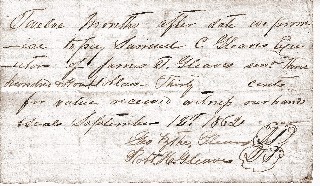 Twelve Months after date we prom
ise to pay Samuel C Gleaves Exec
utor of James T. Gleaves senr Three
hundred Dollars Thirty cents
for value received witness our hands
& seals September 16th 1862
Geo
Robt Gleaves